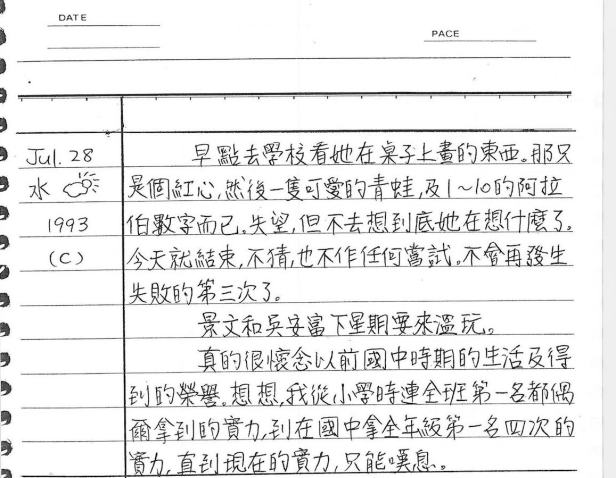 DATE
PACE
Jul. 28 早點去學校看她在桌子上畫的東西。那只
水 是個紅心,然後一隻可愛的青蛙,及1~10的阿拉
1993 伯數字而已。失望,但不去想到底她在想什麼了。
(C) 今天就結束,不猜,也不作任何嘗試。不會再發生
失敗的第三次了。
景文和吳安富下星期要來溫玩。
真的很懷念以前國中時期的生活及得
到的榮譽。想想,我從小學時連全班第一名都偶
爾拿到的實力,到在國中拿全年級第一名四次的
實力,直到現在的實力,只能嘆息。